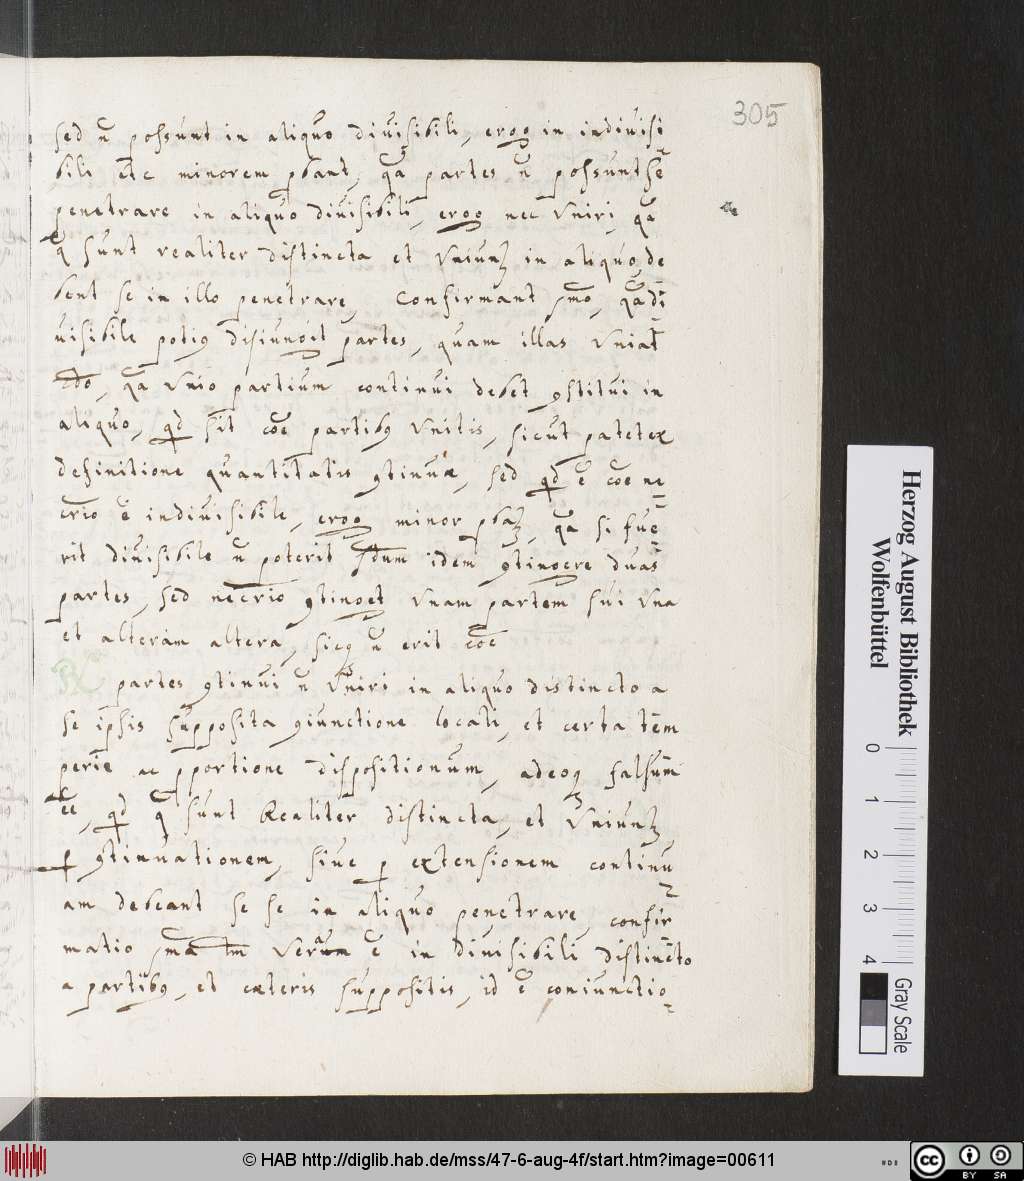 305
sed ñ possunt in aliquo diuisibili, ergo in indiuisi
bili etc minorem pbant, qa partes ñ possunt se
penetrare in aliquo diuisibili, ergo nec vniri, qa
q sunt realiter distincta et vniunt in aliquo, de
bent se in illo penetrare, Confirmant pmo, qa di
uisibile potiꝯ disiungit partes, quam illas vniat
2do, qa vnio partium continui debet ꝯstitui in
aliquo, qd sit coe partibꝯ vnitis, sicut patet ex
definitione quantitatis ꝯtinuæ, sed qd ē coe ne
crio ē indiuisibile, ergo minor pbat, qa si fue
rit diuisibile ñ poterit idem ꝯtingere duas
partes, sed necrio ꝯtinget vnam partem sui vna
et alteram altera, sicq ñ erit coe
R partes ꝯtinui ñ vniri in aliquo distincto a
se ipsis supposita ꝯiunctione locali, et certa tem
perie ac pportione dispositionum, adeoq falsum
ee, qd q sunt Realiter distincta, et vniunt
p ꝯtinuationem, siue p extensionem continu
am debeant se se in aliquo penetrare, confir
matio pma tm ē in diuisibili distincto
a partibꝯ, et cæteris suppositis, id ē coniunctio
Herzog August Bibliothek
Wolfenbüttel
0 1 2 3 4
Gray Scale
© HAB http://diglib.hab.de/mss/47-6-aug-4f/start.htm?image=00611
cc BY SA